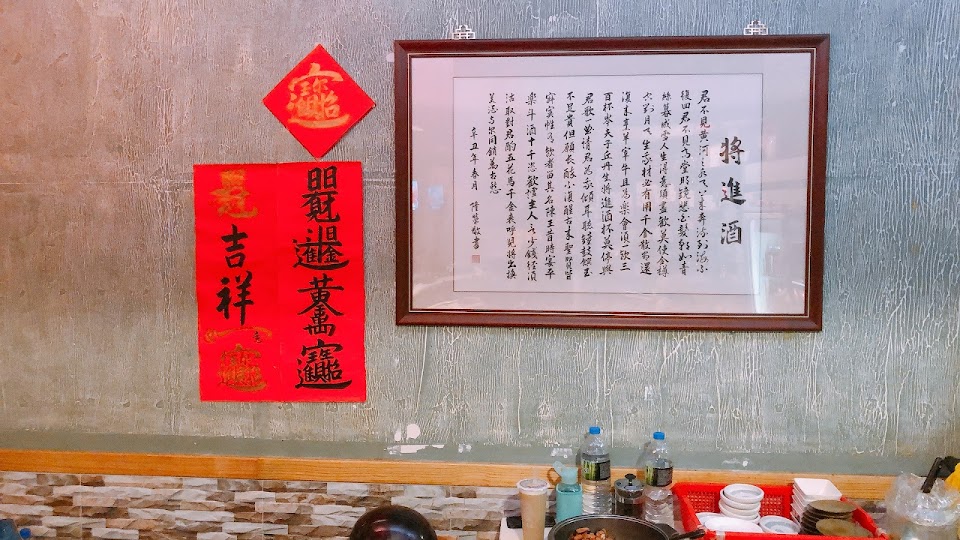 將進酒
君不見黃河之水天上來奔流到海不
復回君不見高堂明鏡悲白髮朝如青
絲暮成雪人生得意須盡歡莫使金樽
空對月天生我材必有用千金散盡還
復來烹羊宰牛且為樂會須一飲三
百杯岑夫子丘丹生將進酒杯莫停與
君歌一曲請君為我傾耳聽鐘鼓饌玉
不足貴但願長醉不復醒古來聖賢皆
寂寞惟有飲者留其名陳王昔時宴平
樂斗酒十千恣歡謔主人少錢徑須
沽取對君酌五花馬千金裘呼兒將出換
美酒與爾同銷萬古愁
辛丑年春月 敬書
招財進寶
日日見財
日日進金
黃金萬兩
招財進寶
吉祥
招財進寶